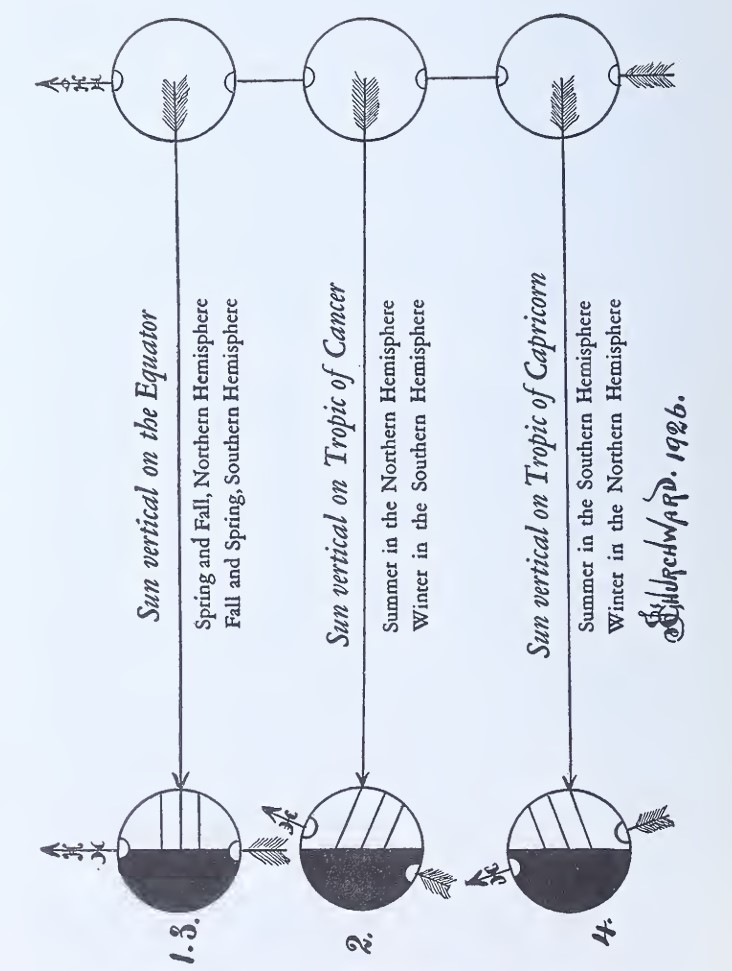 1.3.
Sun vertical on the Equator
Spring and Fall, Northern Hemisphere
Fall and Spring, Southern Hemisphere
2.
Sun vertical on Tropic of Cancer
Summer in the Northern Hemisphere
Winter in the Southern Hemisphere
4.
Sun vertical on Tropic of Capricorn
Summer in the Southern Hemisphere
Winter in the Northern Hemisphere
CHURCHWARD. 1926.